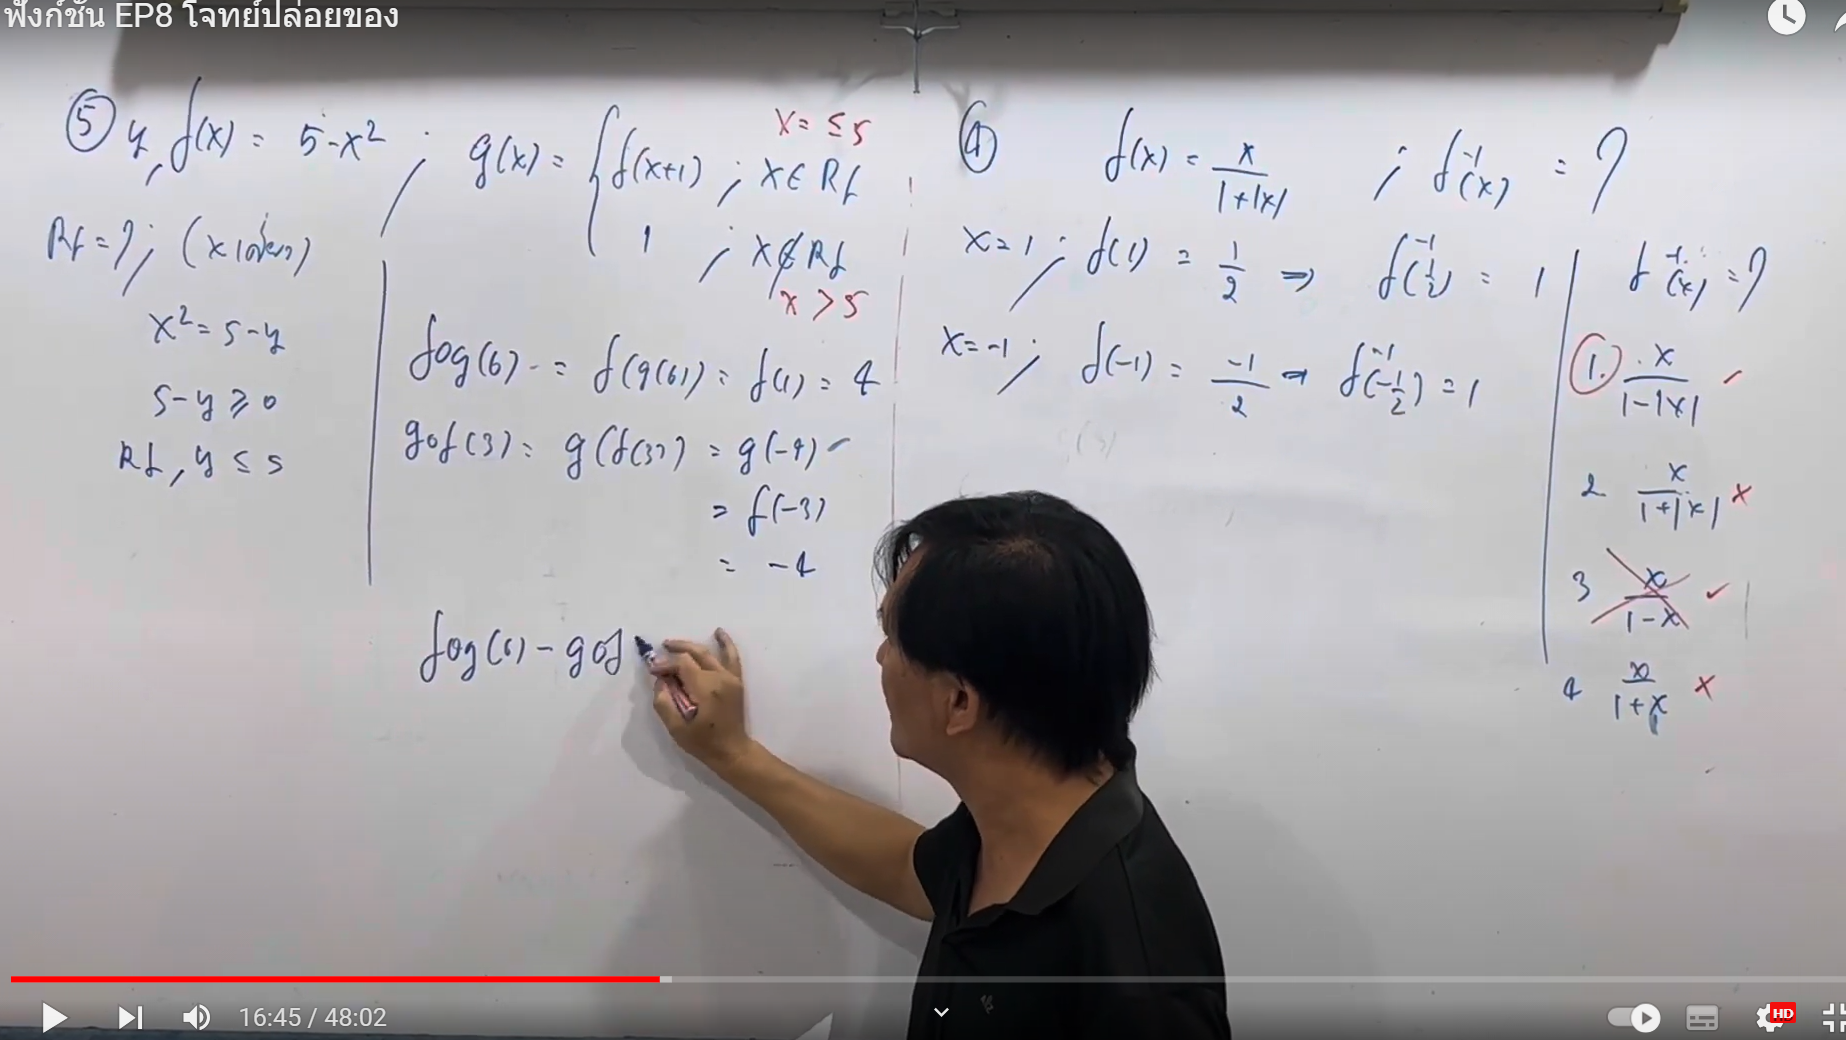 ฟังก์ชัน EP8 โจทย์ปล่อยของ
⑤ y, f(x) = 5-x² ; g(x) = { f(x+1) ; x∈ Rf
x = ≤ 5
1 ; x∉Rf
x > 5
Rf = ? ;
x² = 5-y
5-y ≥ 0
Rf, y ≤ 5
fog(6) = f(g(6)) = f(1) = 4
gof(3) = g(f(3)) = g(-4)
= f(-3)
= -4
fog(6) - gof
④ f(x) = x/(1+|x|) ; f⁻¹(x) = ?
x = 1 ; f(1) = 1/2 ⇒ f⁻¹(1/2) = 1
x = -1 ; f(-1) = -1/2 → f⁻¹(-1/2) = 1
f⁻¹(x) = ?
1. x/(1-|x|) ✓
2 x/(1+|x|) ×
3 x/(1-x) ✓
4 x/(1+x) ×
16:45 / 48:02
HD